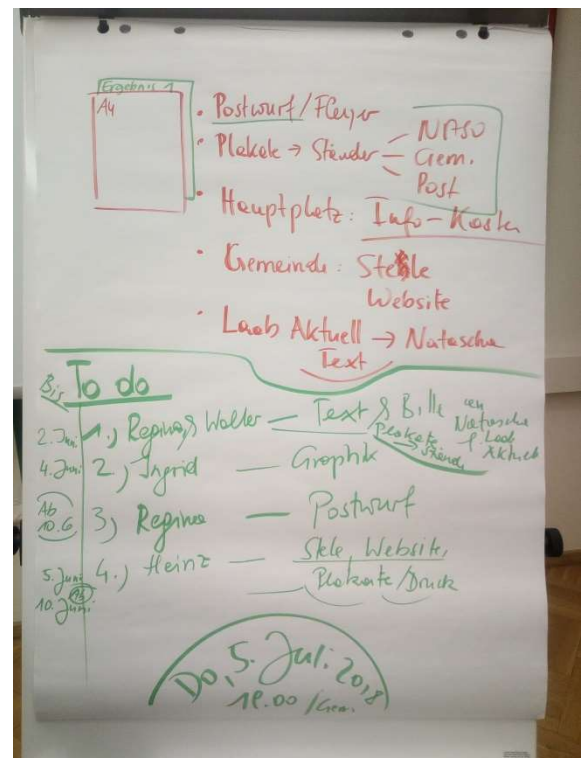 Ergebnis 1
A4
• Postwurf/Fleyer
• Plakate → Ständer — NASO
Gem.
Post
• Hauptplatz: Info-Kasten
• Gemeinde: Stele
Website
• Laab Aktuell → Natascha
Text
Bis To do
2. Juni 1.) Regina & Walter — Text & Bille an Natascha f. Laab Aktuell
Plakate → Ständer
4. Juni 2.) Ingrid — Graphik
Ab 10.6 3.) Regina — Postwurf
5. Juni 4.) Heinz — Stele, Website,
10. Juni Plakate/Druck
Do, 5. Juli 2018
19.00 /Gem.